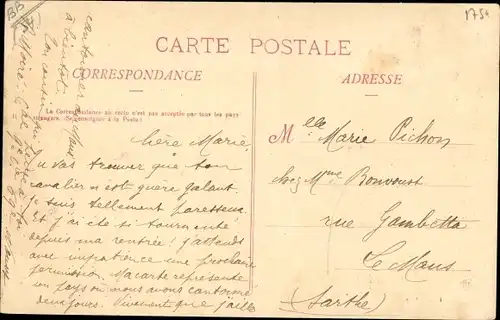 BB
1754
CARTE POSTALE
CORRESPONDANCE
ADRESSE
La Correspondance au recto n'est pas acceptée par tous les pays
étrangers. (Se renseigner à la Poste)
Chère Marie,
u vas trouver que ton
cavalier n'est guère galant.
Je suis tellement paresseux.
Et j'ai été si tourmenté
depuis ma rentrée! J'attends
avec impatience une prochaine
permission. Ma carte représente
un pays où nous avons cantonné
deux jours. Vivement que j'aille
cantonner au Mans
à bientôt
Ton cousin
Melle Marie Pichon
chez Mme Bonvoust
rue Gambetta
Le Mans
(Sarthe)